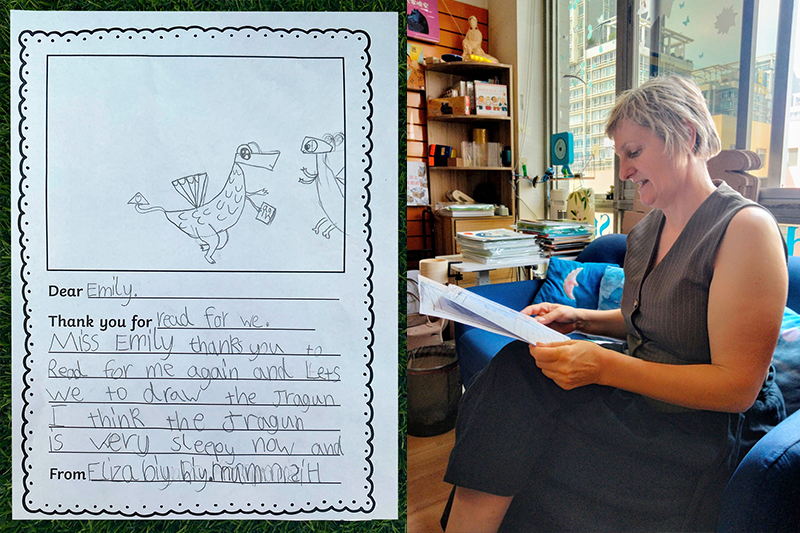 Dear Emily.
Thank you for read for we.
Miss Emily thanks you to
Read for me again and Lets
we to draw the Jragun
I think the Jragun
is very sleepy now and
From Eliza biy